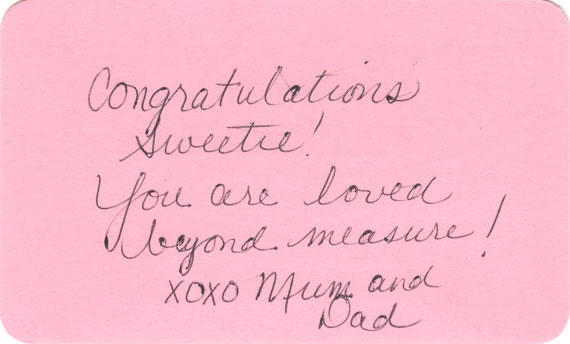 Congratulations
Sweetie!
You are loved
beyond measure!
xoxo Mum and
Dad